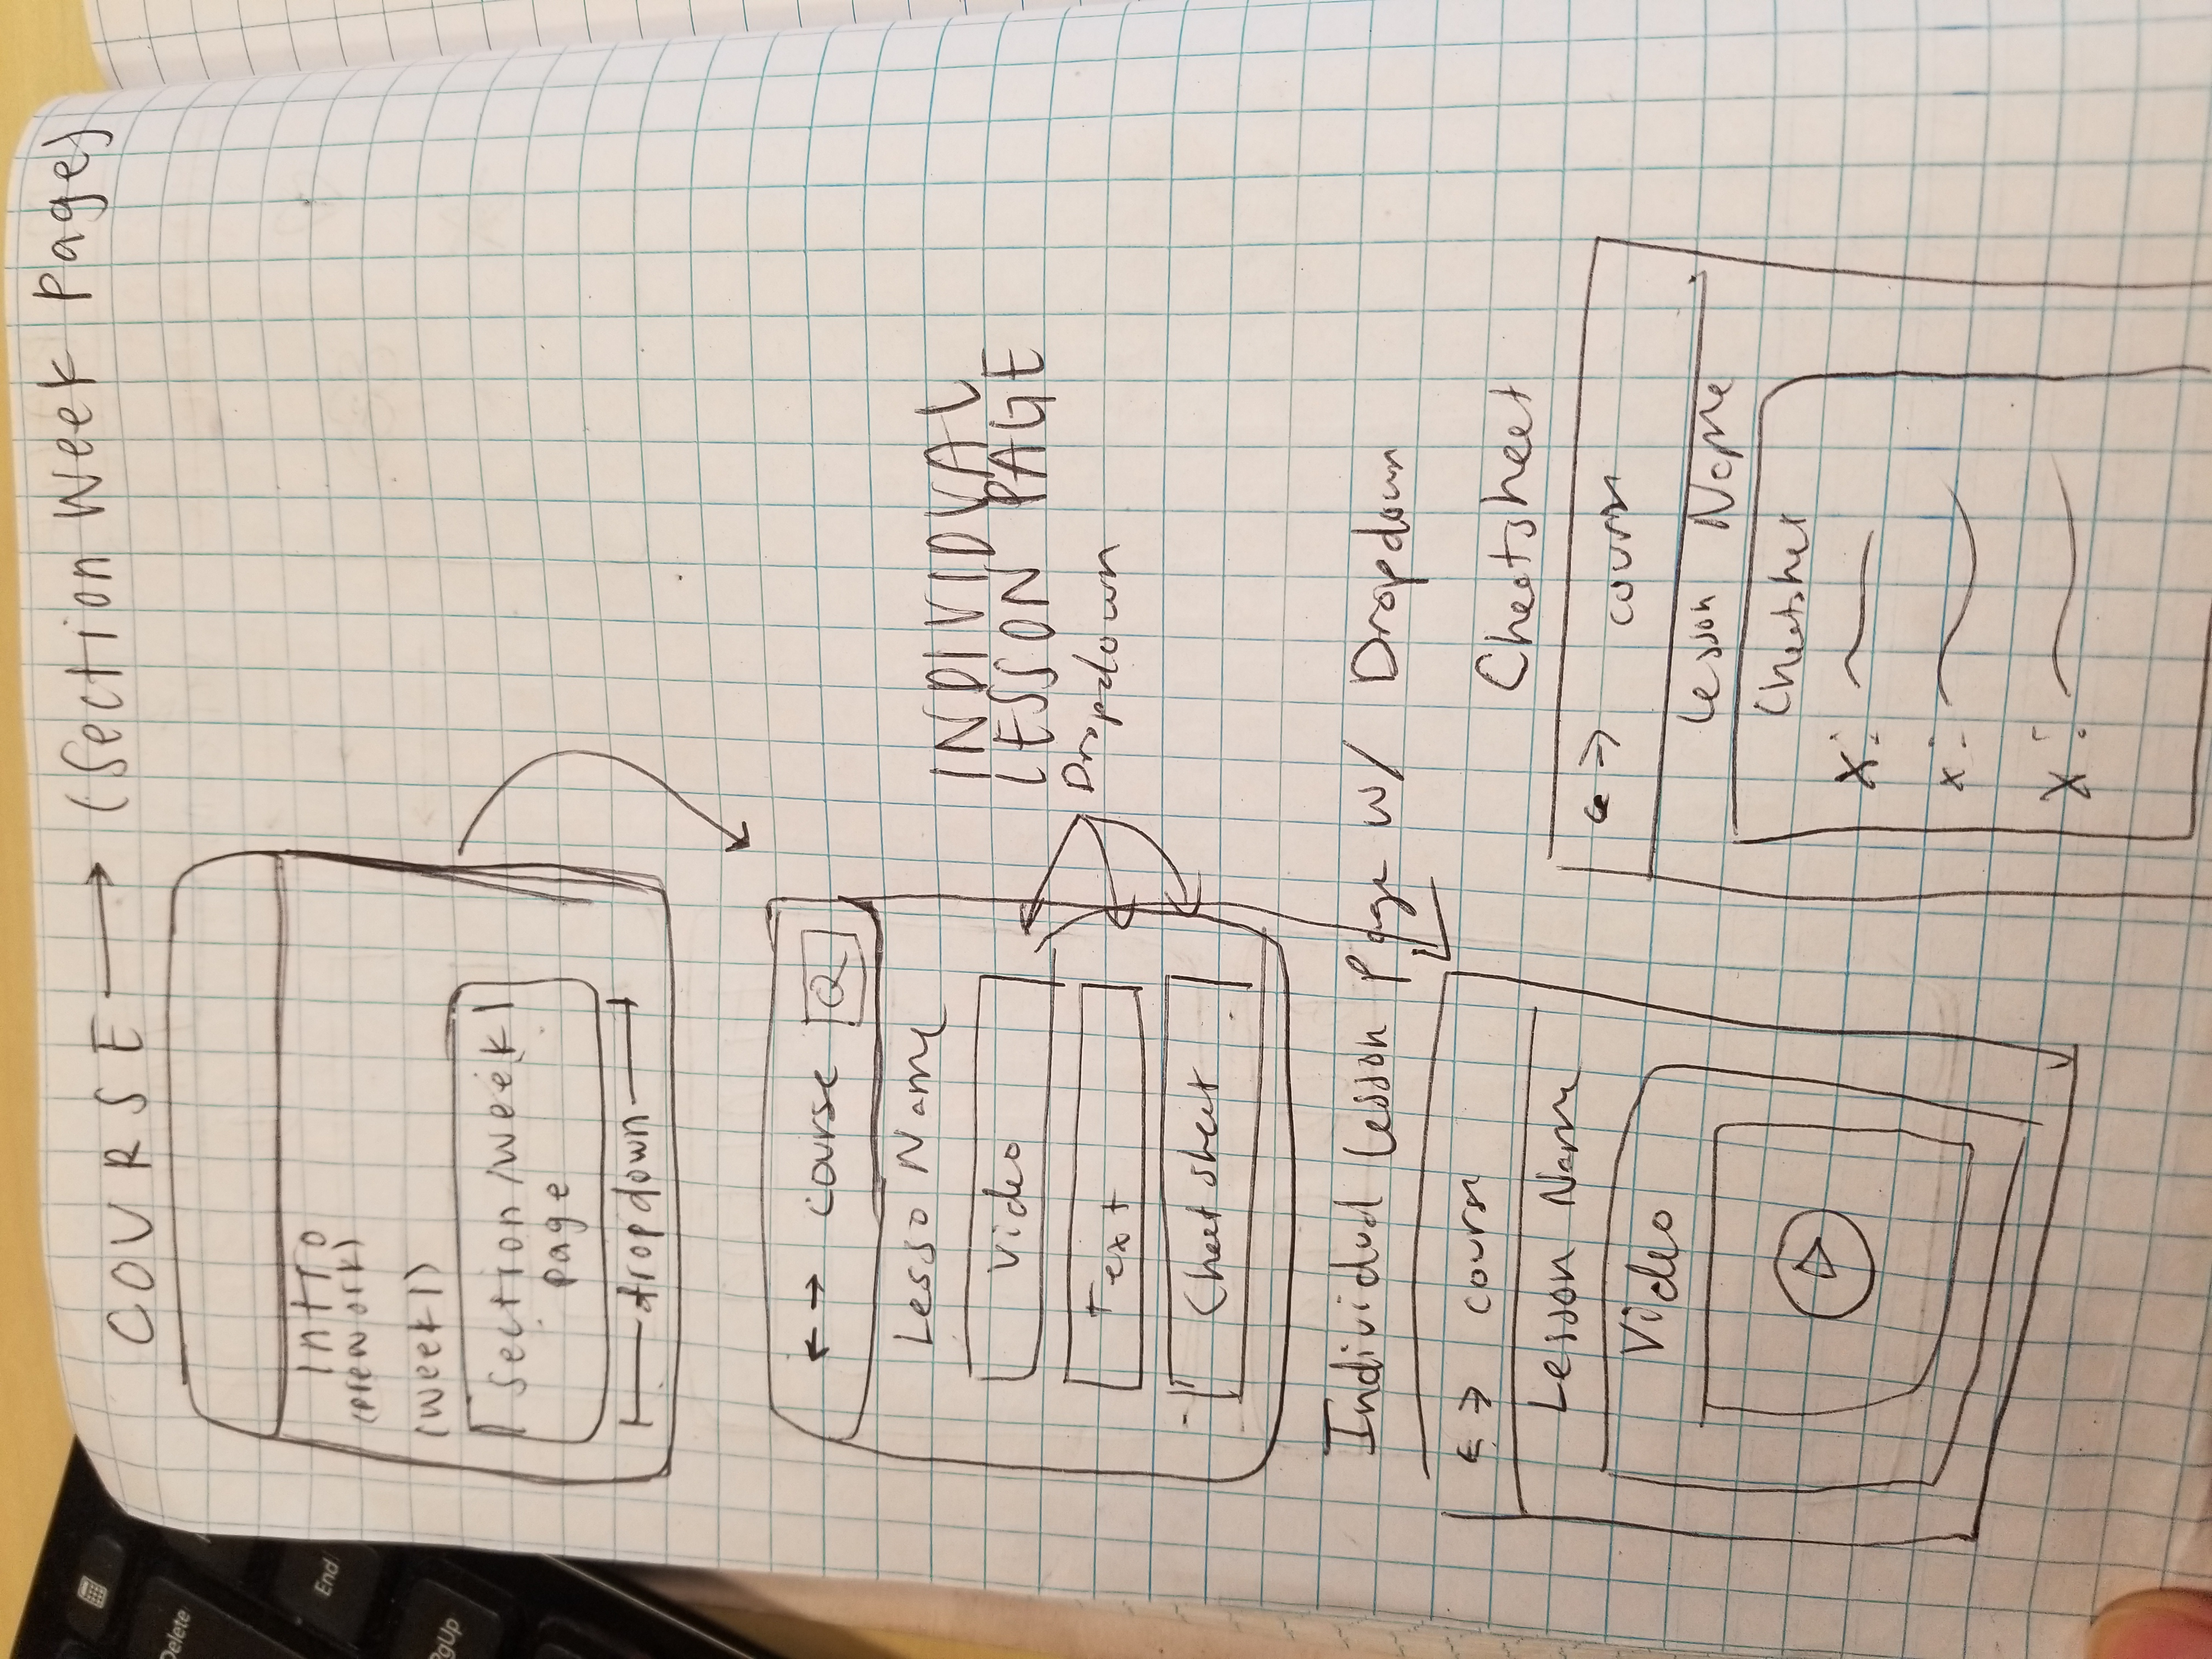 Delete
End
PgUp
COURSE → (Section Week Page)
Intro
(prework)
(week1)
Section/week1
page
dropdown
← → course Q
Lesso Name
Video
Text
Cheetsheet
INDIVIDUAL
LESSON PAGE
Dropdown
Individual Lesson Page w/ Dropdown
← → course
Lesson Name
Video
Cheetsheet
← → course
Lesson Name
Cheetsheet
X:
x:
X: